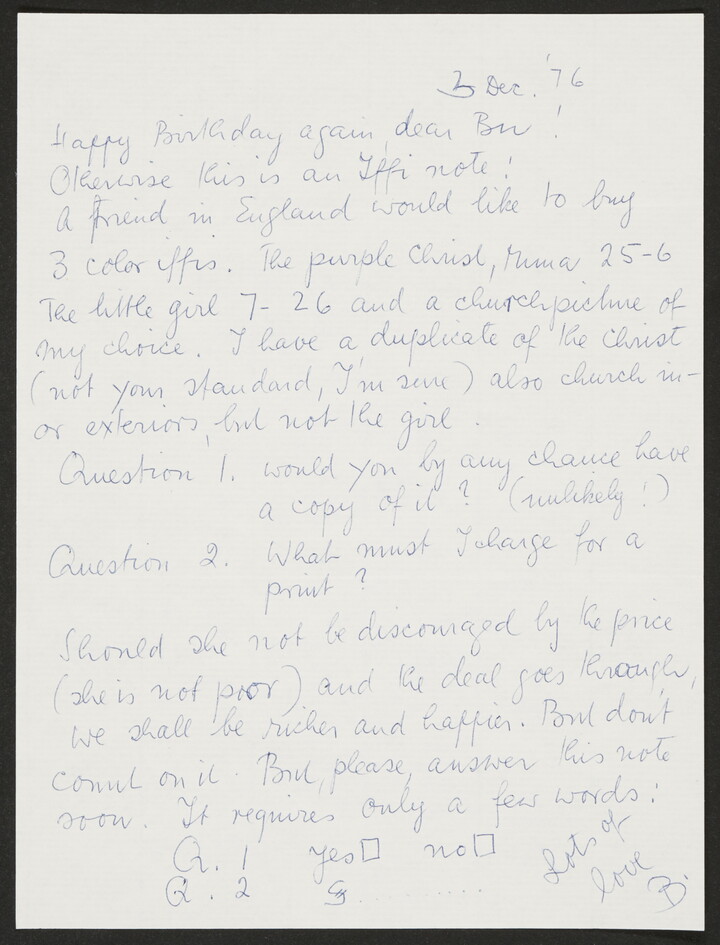 3 Dec. '76
Happy Birthday again, dear Bu !
Otherwise this is an Iffi note!
A friend in England would like to buy
3 color iffis. The purple Christ, Numa 25-6
The little girl 7-26 and a churchpicture of
my choice. I have a duplicate of the Christ
(not your standard, I'm sure) also church in-
or exteriors, but not the girl.
Question 1. would you by any chance have
a copy of it? (unlikely!)
Question 2. What must I charge for a
print?
Should she not be discouraged by the price
(she is not poor) and the deal goes through,
we shall be richer and happier. But don't
count on it. But, please, answer this note
soon. It requires only a few words:
Q. 1 yes□ no□
Q. 2 $ ..........
Lots of
love
B.